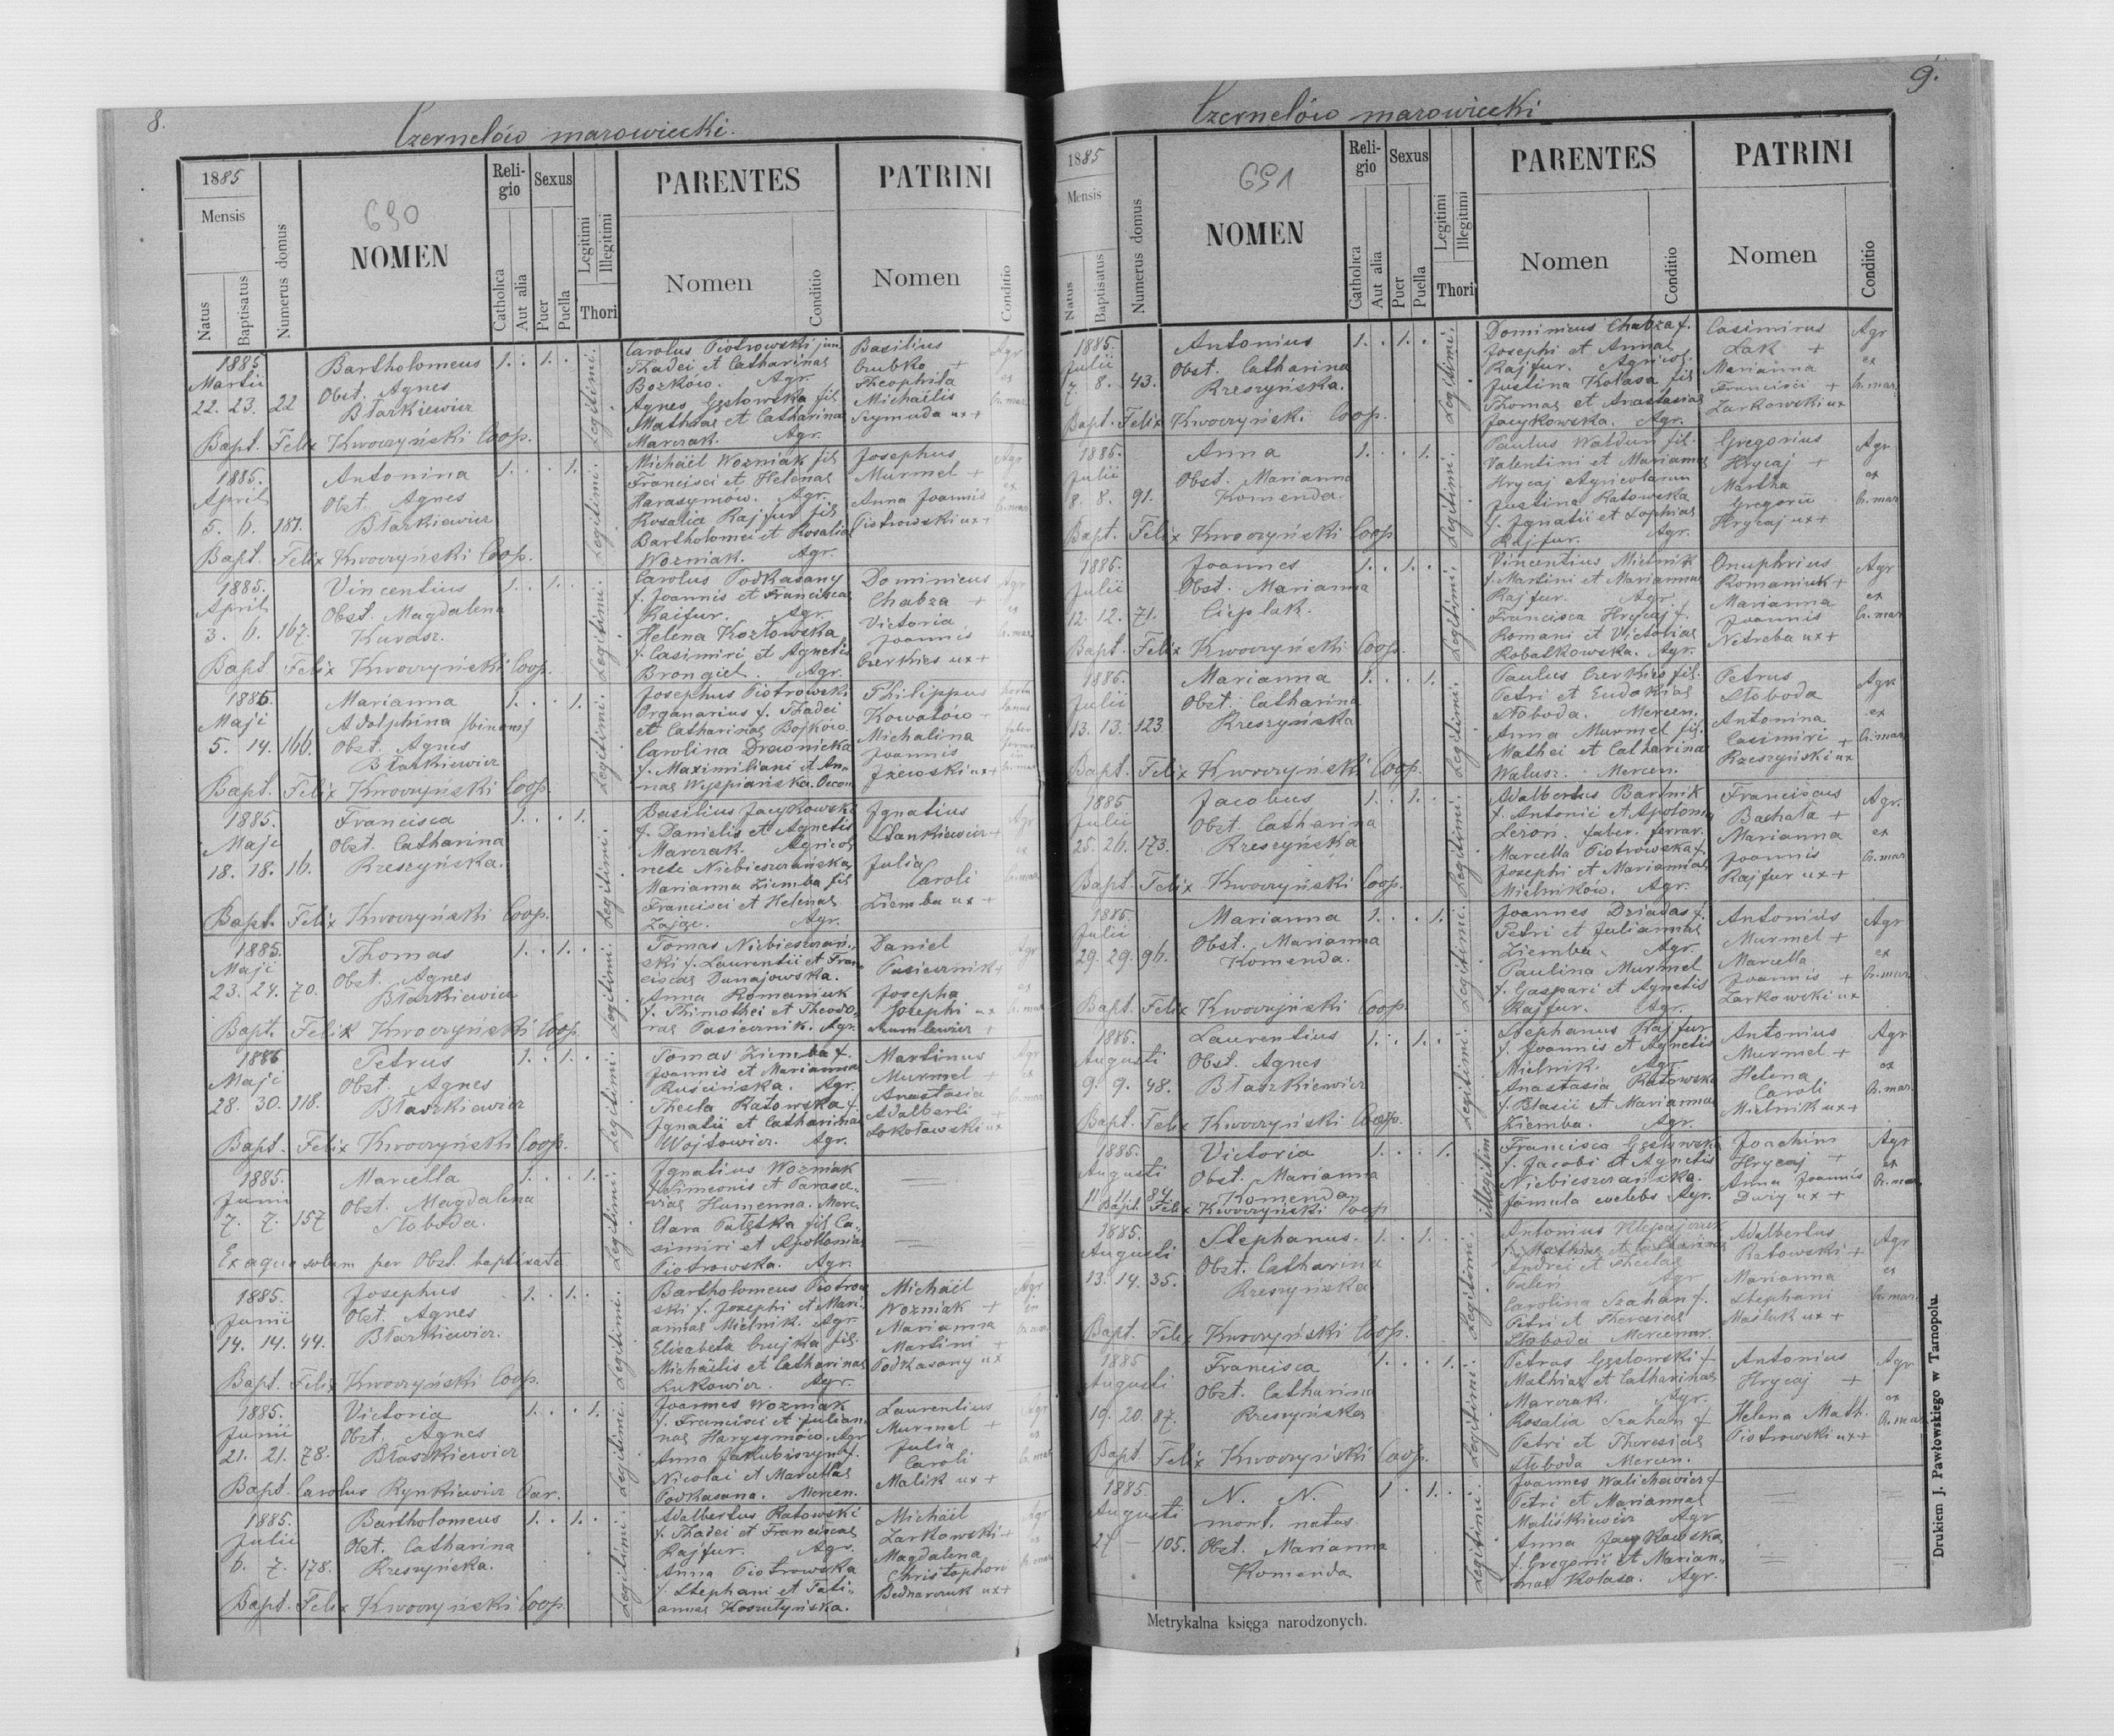 8.
Czernelów mazowiecki.
1885
Mensis
Natus
Baptisatus
Numerus domus
690
NOMEN
Religio
Catholica
Aut alia
Sexus
Puer
Puella
Legitimi
Illegitimi
Thori
PARENTES
Nomen
Conditio
PATRINI
Nomen
Conditio
1885 Bartholomeus 1. . 1. . Legitimi. Carolus Piotrowski jun. Basilius Agr
Martii Obst. Agnes Thadei et Catharinae +
22. 23. 22 Błaskiewicz Bozków. Agr. Theophila ex
Agnes Gęstowska fil Michaelis
Mathiae et Catharinae Szymuda ux +
Bapt. Felix Kwoczyński Coop. Marczak. Agr.
1885. Antonina 1. . . 1. Legitimi. Michaël Wozniak fil Josephus Agr
April Obst. Agnes Francisci et Helenae Murmel + ex
5. 6. 181. Błaskiewicz Harasymow. Agr. Anna Joannis
Rosalia Rajfur fil Piotrowski ux +
Bartholomei et Rosaliae
Bapt. Felix Kwoczyński Coop. Wozniak. Agr.
1885. Vincentius 1. . 1. . Legitimi. Carolus Podkasany Dominicus Agr
April Obst. Magdalena f. Joannis et Franciscae Chabza + ex
3. 6. 167. Kurasz. Rajfur. Agr. Victoria
Helena Kozłowska Joannis
f. Casimiri et Agnetis Czerkies ux +
Bapt Felix Kwoczyński Coop. Brongiel. Agr.
1885 Marianna 1. . . 1. Legitimi. Josephus Piotrowski Philippus
Maji Adolphina (binom) Organarius f. Thadei Kowalów
5. 14. 166. Obst. Agnes et Catharinae Bojków Michalina
Błaskiewicz Carolina Drewnicka Joannis
f. Maximiliani et An-
Bapt. Felix Kwoczyński Coop. nae Wyspiańska.
1885. Francisca 1. . . 1. Legitimi. Basilius Jacykowski Ignatius Agr
Maji Obst. Catharina f. Danielis et Agnetis Stankiewicz +
18. 18. 16. Rzeszyńska. Marczak. Agricol Julia
Caroli
Marianna Ziemba fil Ziemba ux +
Francisci et Helenae
Bapt. Felix Kwoczyński Coop. Zając. Agr.
1885. Thomas 1. . 1. . Legitimi. Tomas Niebieszczań- Daniel Agr
Maji Obst. Agnes ski f. Laurentii et Fran- Pasiecznik +
23. 24. 70. Błaskiewicz ciscae Dunajowska. Josepha ex
Anna Romaniuk Josephi ux
f. Thimothei et Theodo-
Bapt. Felix Kwoczyński Coop. rae Pasiecznik. Agr.
1885 Petrus 1. . 1. . Legitimi. Tomas Ziemba f. Martinus Agr
Maji Obst. Agnes Joannis et Marianna Murmel + ex
28. 30. 118. Błaszkiewicz Ruścińska. Agr. Anastasia
Thecla Ratowska f. Adalberti +
Ignatii et Catharinae Sokołowski ux
Bapt. Felix Kwoczyński Coop. Wojtowicz. Agr.
1885. Marcella 1. . . 1. Legitimi. Ignatius Wozniak
Junii Obst. Magdalena f. Simeonis et Parasce-
7. 7. 157 Słoboda. viae Humenna.
Clara Pałęska fil Ca-
simiri et Apolloniae
Ex aqua solum per Obst. baptisata Piotrowska. Agr.
1885. Josephus 1. . 1. . Legitimi. Bartholomeus Piotrow Michaël Agr
Junii Obst. Agnes ski f. Josephi et Mari- Wozniak + ex
14. 14. 44. Błaskiewicz. annae Mielnik. Agr Marianna
Elizabeta Czujka fil. Martini +
Michaelis et Catharinae Podkasany ux
Bapt. Felix Kwoczyński Coop. Łukowicz. Agr.
1885. Victoria 1. . . 1. Legitimi. Joannes Wozniak Laurentius Agr
Junii Obst. Agnes f. Francisci et Julian- Murmel + ex
21. 21. 78. Błaszkiewicz nae Harysymów. Agr Julia
Anna Jakubiszyn f. Caroli
Nicolai et Marcellae Malik ux +
Bapt. Carolus Rynkiewicz Par. Podkasana. Mercen.
1885. Bartholomeus 1. . 1. . Legitimi. Adalbertus Ratowski Michaël Agr
Julii Obst. Catharina f. Thadei et Franciscae Zarkowski + ex
6. 7. 178. Rzeszyńska. Rajfur. Agr. Magdalena
Anna Piotrowska Christophori
f. Stephani et Tati- Bednarczuk ux +
Bapt. Felix Kwoczyński Coop. annae Koszutyńska.
9.
Czernelów mazowiecki
1885
Mensis
Natus
Baptisatus
Numerus domus
691
NOMEN
Religio
Catholica
Aut alia
Sexus
Puer
Puella
Legitimi
Illegitimi
Thori
PARENTES
Nomen
Conditio
PATRINI
Nomen
Conditio
1885. Antonius 1. . 1. . Legitimi. Dominicus Chabza f. Casimirus Agr
Julii Obst. Catharina Josephi et Annae Lak + ex
7. 8. 43. Rzeszyńska. Rajfur. Agricol. Marianna
Justina Kolasa fil Francisci + Cz. maz.
Thomae et Anastasiae Zarkowski ux
Bapt. Felix Kwoczyński Coop. Jacykowska. Agr.
1885. Anna 1. . . 1. Legitimi. Paulus Waldun fil. Gregorius Agr
Julii Obst. Marianna Valentini et Mariannae Hrycaj + ex
8. 8. 91. Komenda. Hrycaj Agricolarum Martha Cz. maz
Justina Ratowska Gregorii
f. Ignatii et Sophiae Hrycaj ux +
Bapt. Felix Kwoczyński Coop Rajfur. Agr.
1885. Joannes 1. . 1. . Legitimi. Vincentius Mielnik Onuphrius Agr
Julii Obst. Marianna f. Martini et Mariannae Romaniuk + ex
12. 12. 71. Cieplak. Rajfur. Agr. Marianna Cz. maz
Francisca Hrycaj f. Joannis
Romani et Victoriae Netreba ux +
Bapt. Felix Kwoczyński Coop. Kobatkowska. Agr.
1885. Marianna 1. . . 1. Legitimi. Paulus Czerkies fil. Petrus Agr
Julii Obst. Catharina Petri et Eudokiae Słoboda ex
13. 13. 123 Rzeszyńska Słoboda. Mercen. Antonina
Anna Murmel fil. Casimiri + Cz. maz
Mathei et Catharinae Rzeszyński ux
Bapt. Felix Kwoczyński Coop. Walusz. Mercen.
1885 Jacobus 1. . 1. . Legitimi. Adalbertus Bartnik Franciscus Agr.
Julii Obst. Catharina f. Antonii et Apolonia Bachata + ex
25. 26. 173. Rzeszyńska Lezon. faber. ferrar. Marianna
Marcella Piotrowska f. Joannis Cz. maz
Josephi et Mariannae Rajfur ux +
Bapt. Felix Kwoczyński Coop. Mielników. Agr.
1885. Marianna 1. . . 1. Legitimi. Joannes Dziadas f. Antonius Agr
Julii Obst. Marianna Petri et Juliannae Murmel + ex
29. 29. 96. Komenda. Ziemba. Agr. Marcella
Paulina Murmel Joannis + Cz. maz
f. Gaspari et Agnetis Zarkowski ux
Bapt. Felix Kwoczyński Coop. Rajfur. Agr.
1885. Laurentius 1. . 1. . Legitimi. Stephanus Rajfur Antonius Agr
Augusti Obst. Agnes f. Joannis et Agnetis Murmel + ex
9. 9. 48. Błaszkiewicz Mielnik. Agr. Helena
Anastasia Ratowska Caroli Cz. maz.
f. Blasii et Mariannae Mielnik ux +
Bapt. Felix Kwoczyński Coop. Ziemba. Agr.
1885. Victoria 1. . . 1. illegitim Francisca Gęstowska Joachim Agr
Augusti Obst. Marianna f. Jacobi et Agnetis Hrycaj + ex
11. 11. 84. Komenda Niebieszczańska. Anna Joannis Cz. maz
Bapt. Felix Kwoczyński Coop famula coelebs Agr. ux +
1885. Stephanus. 1. . 1. . Legitimi. Antonius Adalbertus Agr
Augusti Obst. Catharina Ratowski + ex
13. 14. 35. Rzeszyńska Andrei et Theclae Marianna
Agr Stephani Cz. maz.
Carolina Szahan f. Maśluk ux +
Petri et Theresiae
Bapt. Felix Kwoczyński Coop. Słoboda Mercenar.
1885 Francisca 1. . . 1. Legitimi. Petrus Gęstowski f Antonius Agr
Augusti Obst. Catharina Mathiae et Catharinae Hrycaj + ex
19. 20. 87. Rzeszyńska Marczak. Agr. Helena Math. Cz. maz
Rosalia Szahan f Piotrowski ux +
Petri et Theresiae
Bapt Felix Kwoczyński Coop. Słoboda Mercen.
1885. N. N. 1 . 1. . Legitimi. Joannes Walichiewicz f
Augusti mort. natus. Petri et Mariannae
27 — 105. Obst. Marianna Maliskiewicz Agr
Komenda Anna Jacykowska
f. Gregorii et Marian-
nae Kolasa. Agr.
Metrykalna księga narodzonych.
Drukiem J. Pawłowskiego w Tarnopolu.